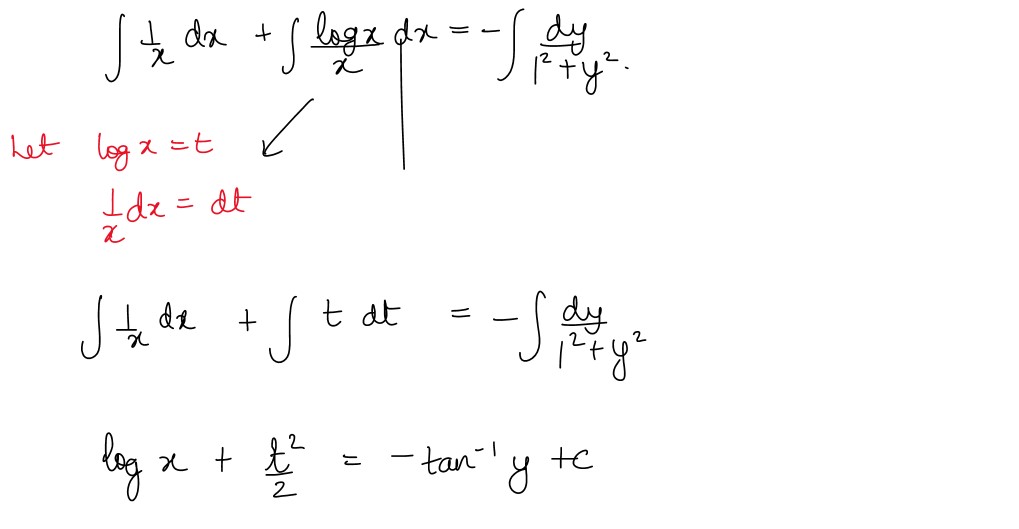 ∫ 1/x dx + ∫ log x/x dx = - ∫ dy/1²+y².
Let log x = t
1/x dx = dt
∫ 1/x dx + ∫ t dt = - ∫ dy/1²+y²
log x + t²/2 = - tan⁻¹ y + c